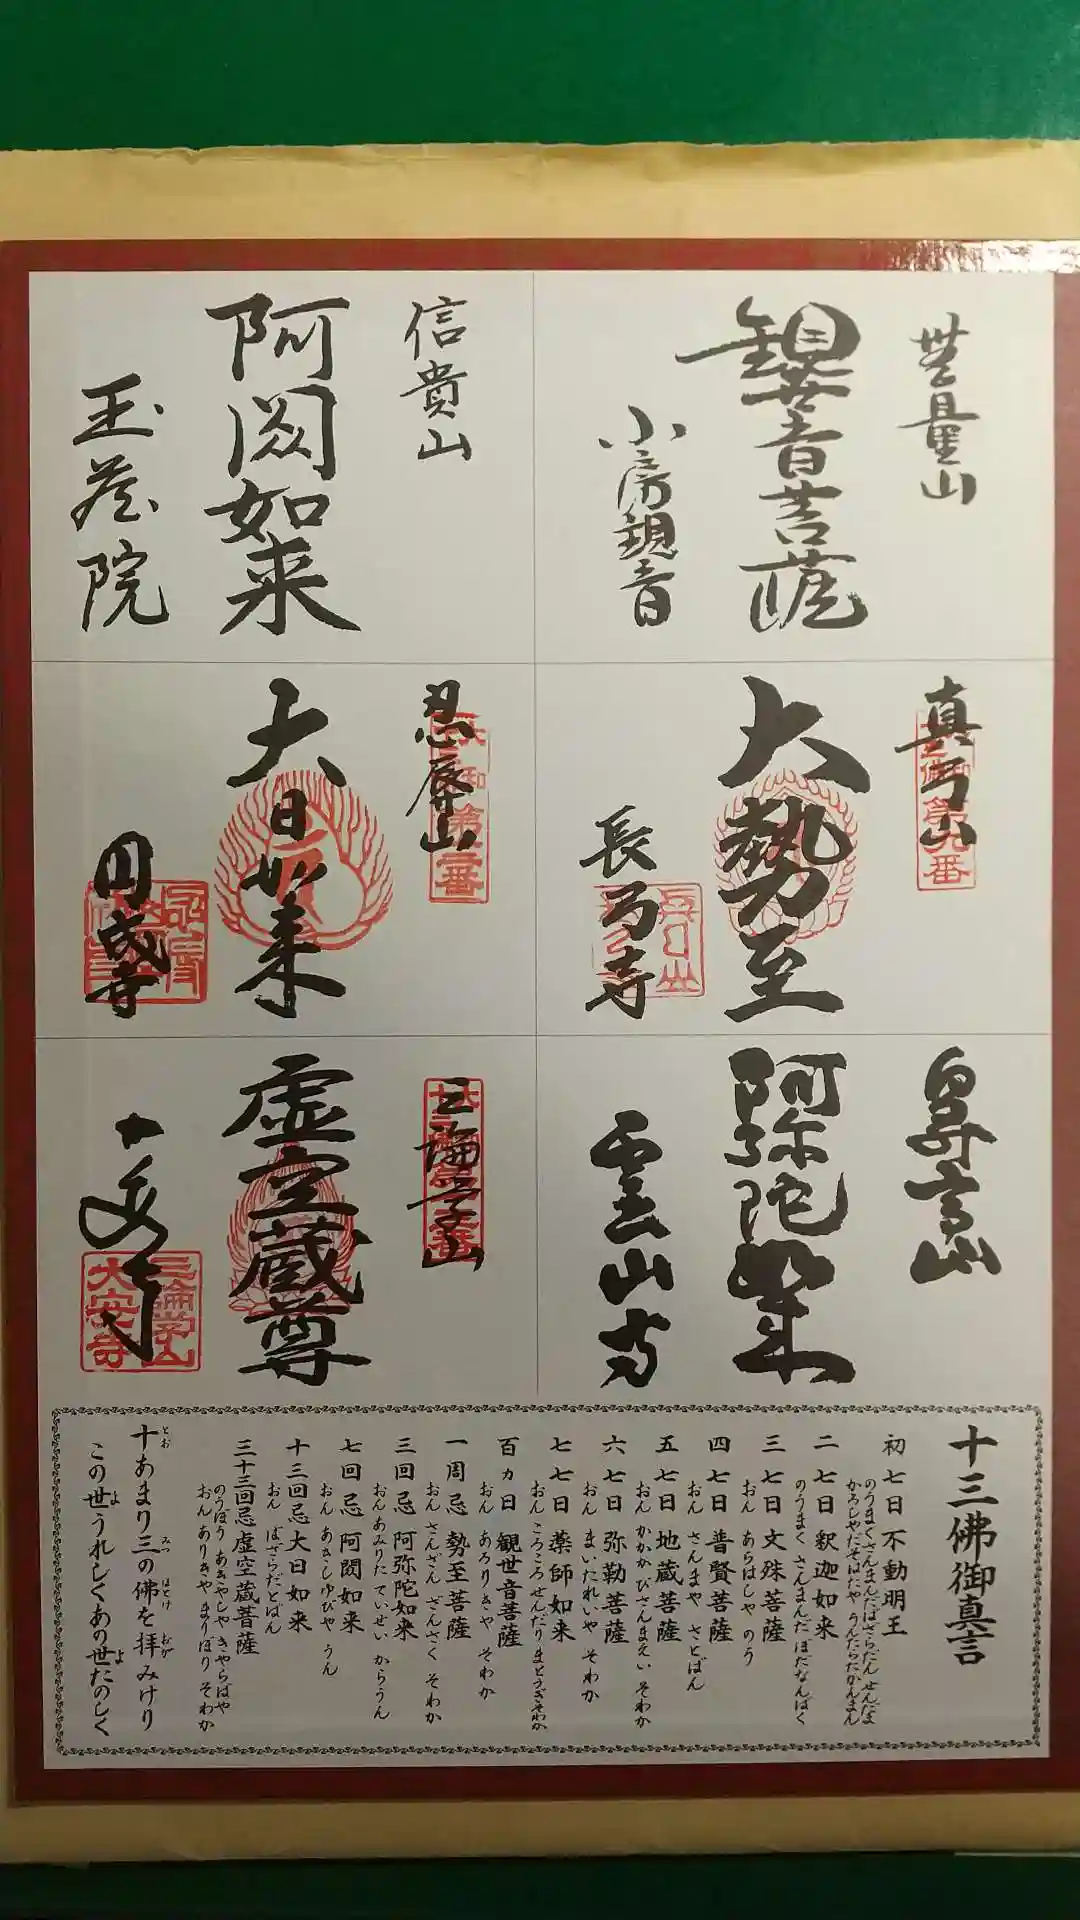 無量山
観世音菩薩
小房観音
信貴山
阿閦如来
玉蔵院
真弓山
大勢至
長弓寺
忍辱山
大日如来
円成寺
鼻高山
阿弥陀如来
霊山寺
三論学山
虚空蔵尊
大安寺
三論学山
大安寺
十三佛御真言
初七日 不動明王
のうまくさんまんだばざらだんせんだま
かろしやだそはたやうんたらたかんまん
二七日 釈迦如来
のうまくさんまんだぼだなんばく
三七日 文殊菩薩
おん あらはしや のう
四七日 普賢菩薩
おん さんまや さとばん
五七日 地蔵菩薩
おん かかか びさんまえい そわか
六七日 弥勒菩薩
おん まいたれいや そわか
七七日 薬師如来
おん ころころせんだり まとうぎそわか
百ヵ日 観世音菩薩
おん あろりきや そわか
一周忌 勢至菩薩
おん さんざん ざんさく そわか
三回忌 阿弥陀如来
おんあみりたていせいからうん
七回忌 阿閦如来
おん あきしゆびや うん
十三回忌 大日如来
おん ばざらだとばん
三十三回忌 虚空蔵菩薩
のうぼう あきやしや きやらばや
おん ありきや まりぼり そわか
十あまり三の佛を拝みけり
この世うれしくあの世たのしく